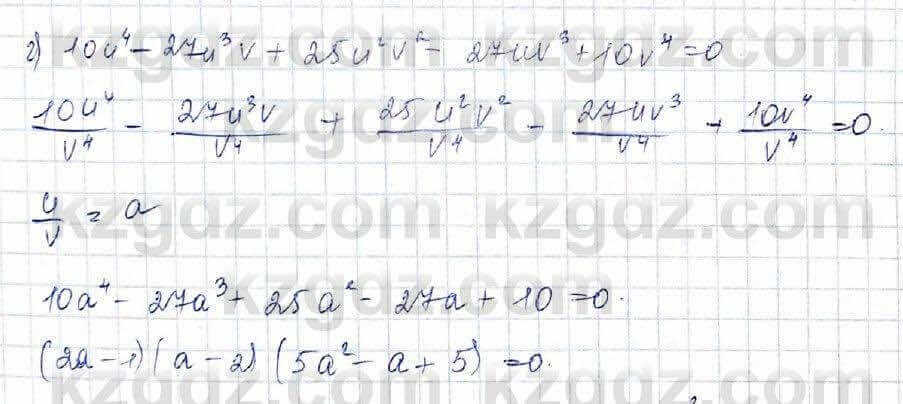 г) 10u⁴ - 27u³v + 25u²v² - 27uv³ + 10v⁴ = 0
10u⁴/v⁴ - 27u³v/v⁴ + 25u²v²/v⁴ - 27uv³/v⁴ + 10v⁴/v⁴ = 0.
u/v = a
10a⁴ - 27a³ + 25a² - 27a + 10 = 0.
(2a - 1)(a - 2)(5a² - a + 5) = 0.
kzgdz.com